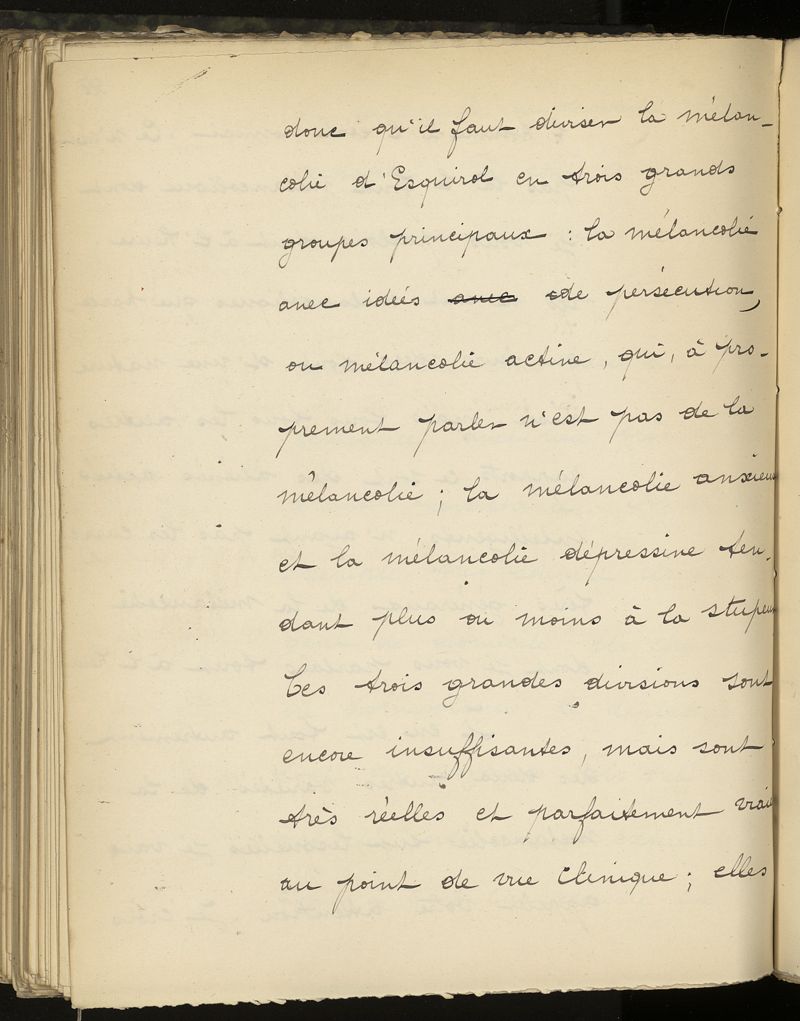 donc qu'il faut diviser la mélan-
colie d'Esquirol en trois grands
groupes principaux : la mélancolie
avec idées avec de persécution,
ou mélancolie active, qui, à pro-
prement parler n'est pas de la
mélancolie ; la mélancolie anxieuse
et la mélancolie dépressive ten-
dant plus ou moins à la stupeur
Ces trois grandes divisions sont
encore insuffisantes, mais sont
très réelles et parfaitement vraies
au point de vue clinique ; elles